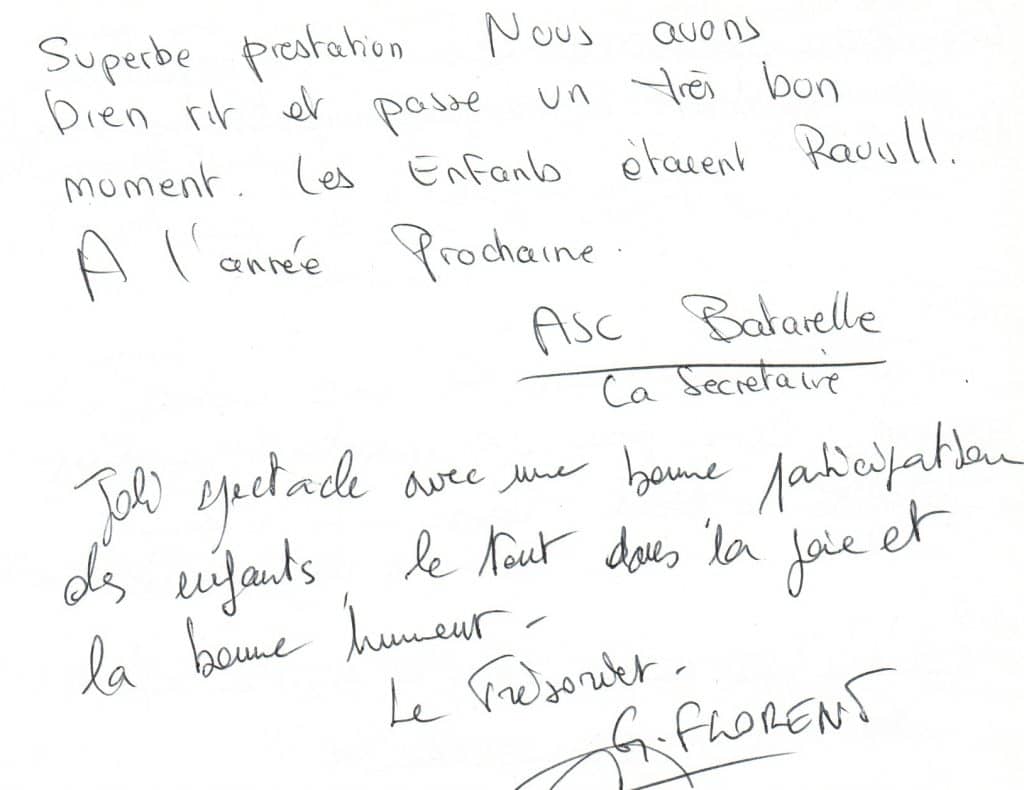 Superbe prestation Nous avons
bien rit et passe un très bon
moment. Les Enfants étaient Ravis!!.
A l'année Prochaine.
ASC Batarelle
La Secretaire
Joli spectacle avec une bonne participation
des enfants, le tout dans la joie et
la bonne humeur -
Le Trésorier -
G. FLORENT